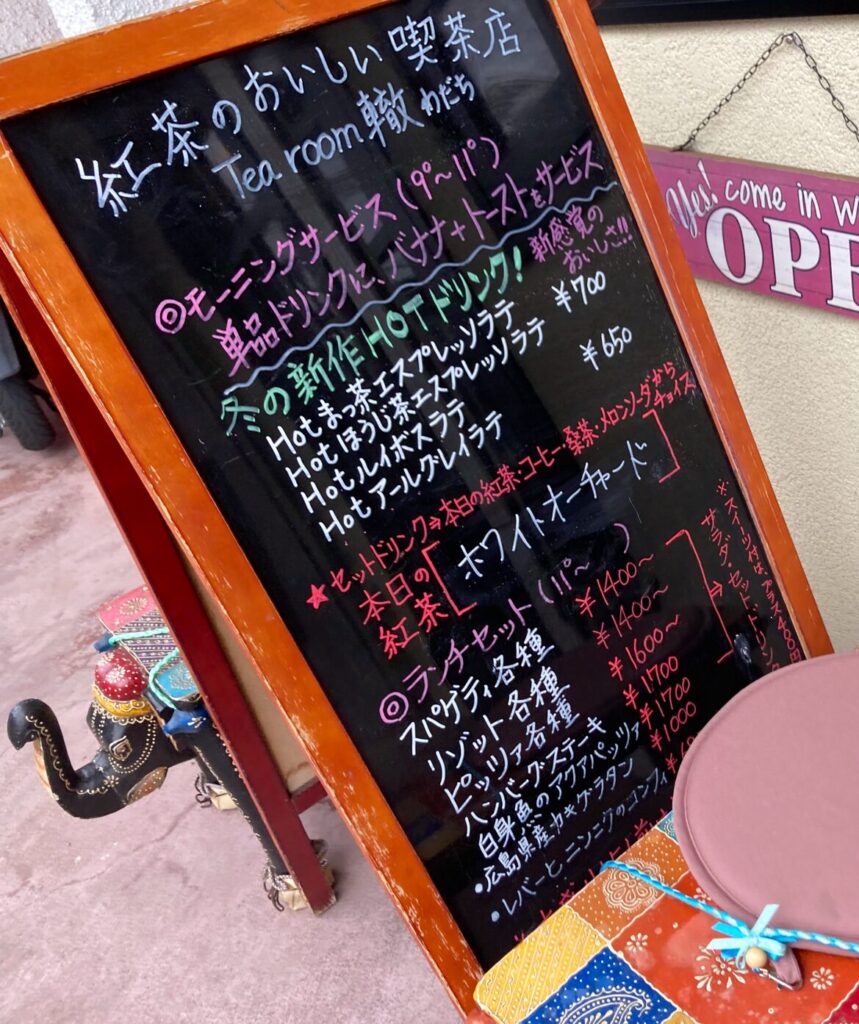 紅茶のおいしい喫茶店
Tea room 轍 わだち
◎モーニングサービス(9°~11°)
単品ドリンクに、バナナ+トーストをサービス
冬の新作HOTドリンク! 新感覚のおいしさ!!!
Hotまっ茶エスプレッソラテ ¥700
Hotほうじ茶エスプレッソラテ
Hotルイボスラテ ¥650
Hotアールグレイラテ
★セットドリンク⇒本日の紅茶・コーヒー・桑茶・メロンソーダからチョイス
本日の紅茶 [ホワイトオーチャード]
◎ランチセット(11°~ )
スパゲティ各種 ¥1400~
リゾット各種 ¥1400~
ピッツァ各種 ¥1600~
ハンバーグステーキ ¥1700
白身魚のアクアパッツァ ¥1700
・広島県産カキグラタン ¥1000
・レバーとニンニクのコンフィ
サラダ・セットドリンク
※スイーツ付は、プラス400円
Yes! come in
OPE